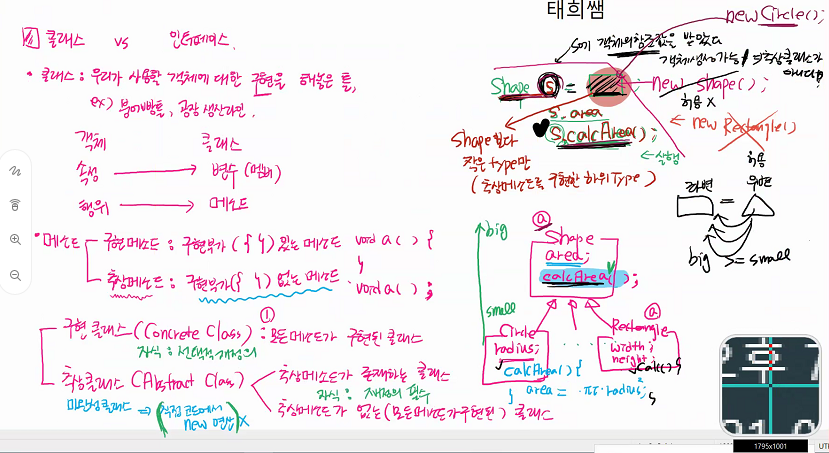 태희쌤
클래스 vs 인터페이스.
• 클래스 : 우리가 사용할 객체에 대한 구현을 해놓은 틀,
ex) 붕어빵틀, 공장 생산라인,
객체 클래스
속성 → 변수 (멤버)
행위 → 메소드
• 메소드 구현메소드 : 구현부가 ({ }) 있는 메소드 void a( ) {
}
추상메소드 : 구현부가({ }) 없는 메소드. void a( ) ;
①
구현 클래스 (Concrete Class) : 모든메소드가 구현된 클래스
자식 : 선택적 재정의
추상클래스 (Abstract Class) 추상메소드가 존재하는 클래스
자식 : 재정의 필수
미완성클래스 ⇒ (직접 코드에서 new 연산) X
추상메소드가 없는 (모든메소드가구현된) 클래스
new Circle();
s에 객체의참조값을 받았다
Shape s = new Shape();
허용 X
s.area
s.calcArea();
← 실행
← new Rectangle()
허용
Shape보다
작은 type만
(추상메소드를 구현한 하위Type)
좌변 = 우변
big >= small
big
small
ⓐ
Shape
area;
calcArea();
Circle
radius;
calcArea() {
area = π · radius²;
}
ⓐ
Rectangle
width;
height;
calc() {
}
1795x1001
UT